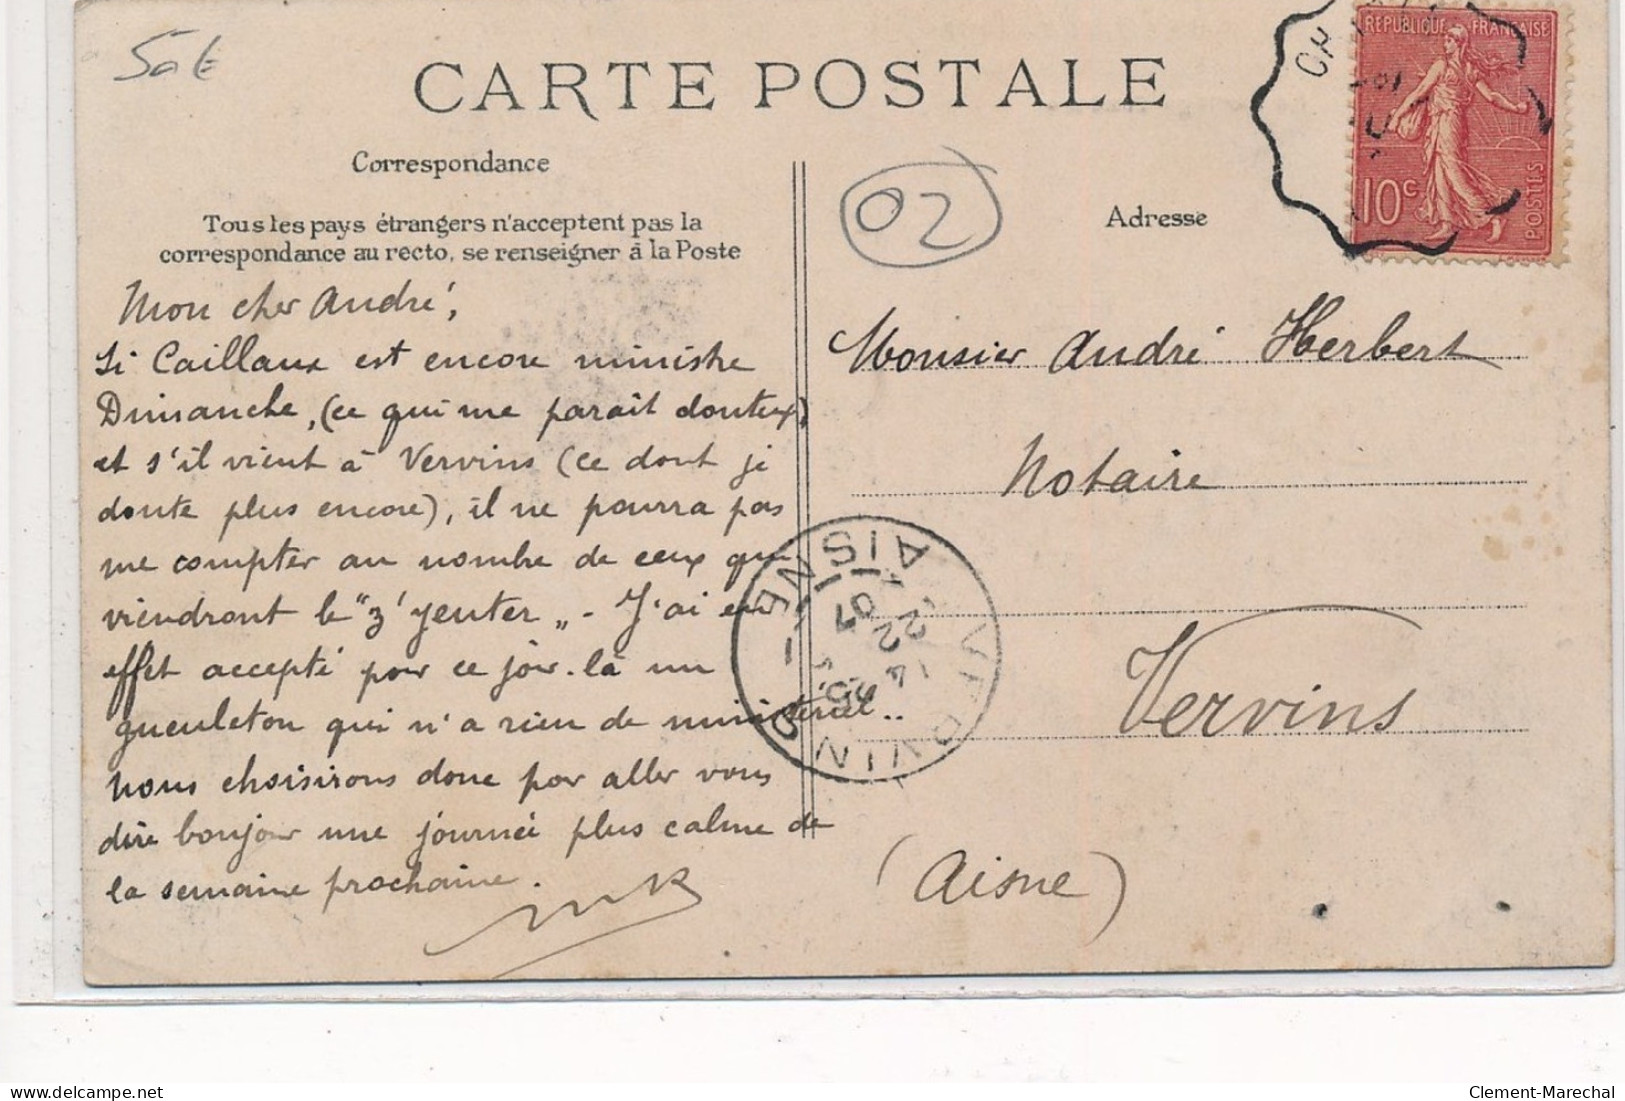 5o €
CARTE POSTALE
Correspondance
Tous les pays étrangers n'acceptent pas la
correspondance au recto, se renseigner à la Poste
Mon cher André,
Si Caillaux est encore ministre
Dimanche, (ce qui me parait douteux)
et s'il vient à Vervins (ce dont je
doute plus encore), il ne pourra pas
me compter au nombre de ceux qui
viendront le "z'yeuter" - J'ai en
effet accepté pour ce jour-là un
gueuleton qui n'a rien de ministériel..
Nous choisirons donc pour aller vous
dire bonjour une journée plus calme de
la semaine prochaine.
02
Adresse
REPUBLIQUE FRANÇAISE
10c
POSTES
Monsier André Herbert
Notaire
Vervins
(Aisne)
VERVINS
AISNE
22
07
delcampe.net
Clement-Marechal